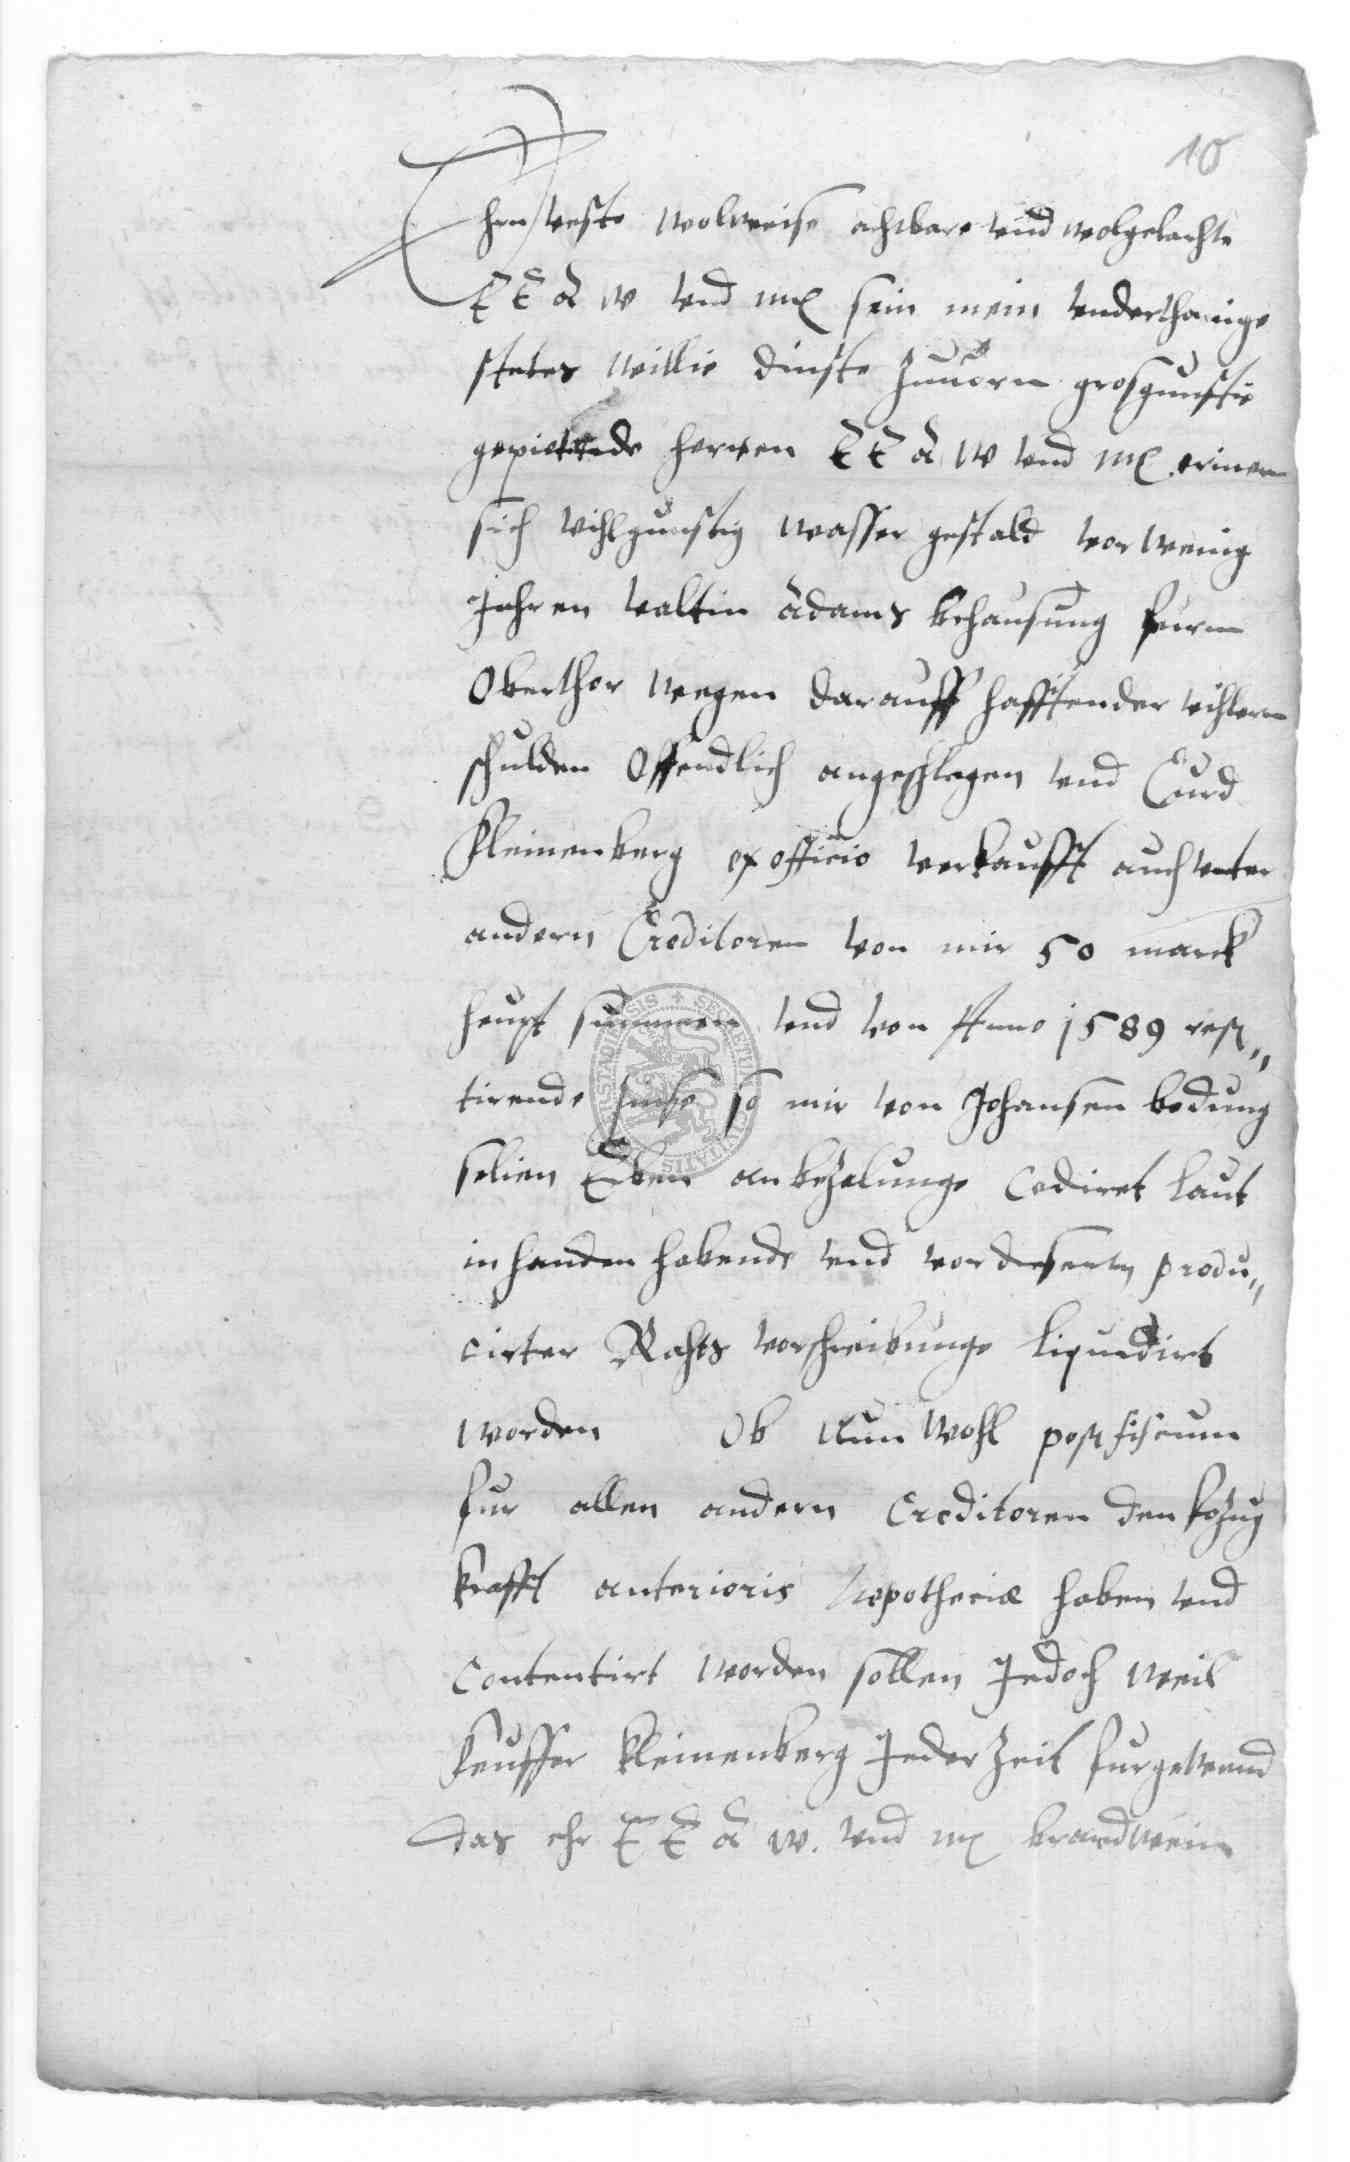 10
Ehrnveste wolweise achtbare vnd wolgelarhte
E E A W vnd mg sein mein vnderthanige
stetes willie dinste zuuorn grosgunstie
gepietende herren E E A W vnd mg erinern
sich vihlgunstig wasser gestald vor wenig
Jahren Valtin Adams behausung furm
Oberthor wegen darauff hafftender vihlern
schulden Offendlich angeschlagen vnd Curd
Kleinenberg ex officio verkaufft auch vnter
andern Creditoren von mir 50 marck
heupt summen vnd von Anno 1589 res„
tirende zinse so mir von Johansen bodung
selien Erben an bezalunge Cediret laut
in handen habende vnd vor diesem produ„
cirter Rahts vorschreibunge liquidirt
worden Ob Nun Wohl post fiscum
fur allen andern Creditoren den fozug
krafft anterioris hepothecæ haben vnd
Contentirt worden sollen Jedoch weil
keuffer Kleinenberg Jeder Zeit furgewand
das ehr E E A W. vnd mg brandwein
SECRETUM CIVITATIS